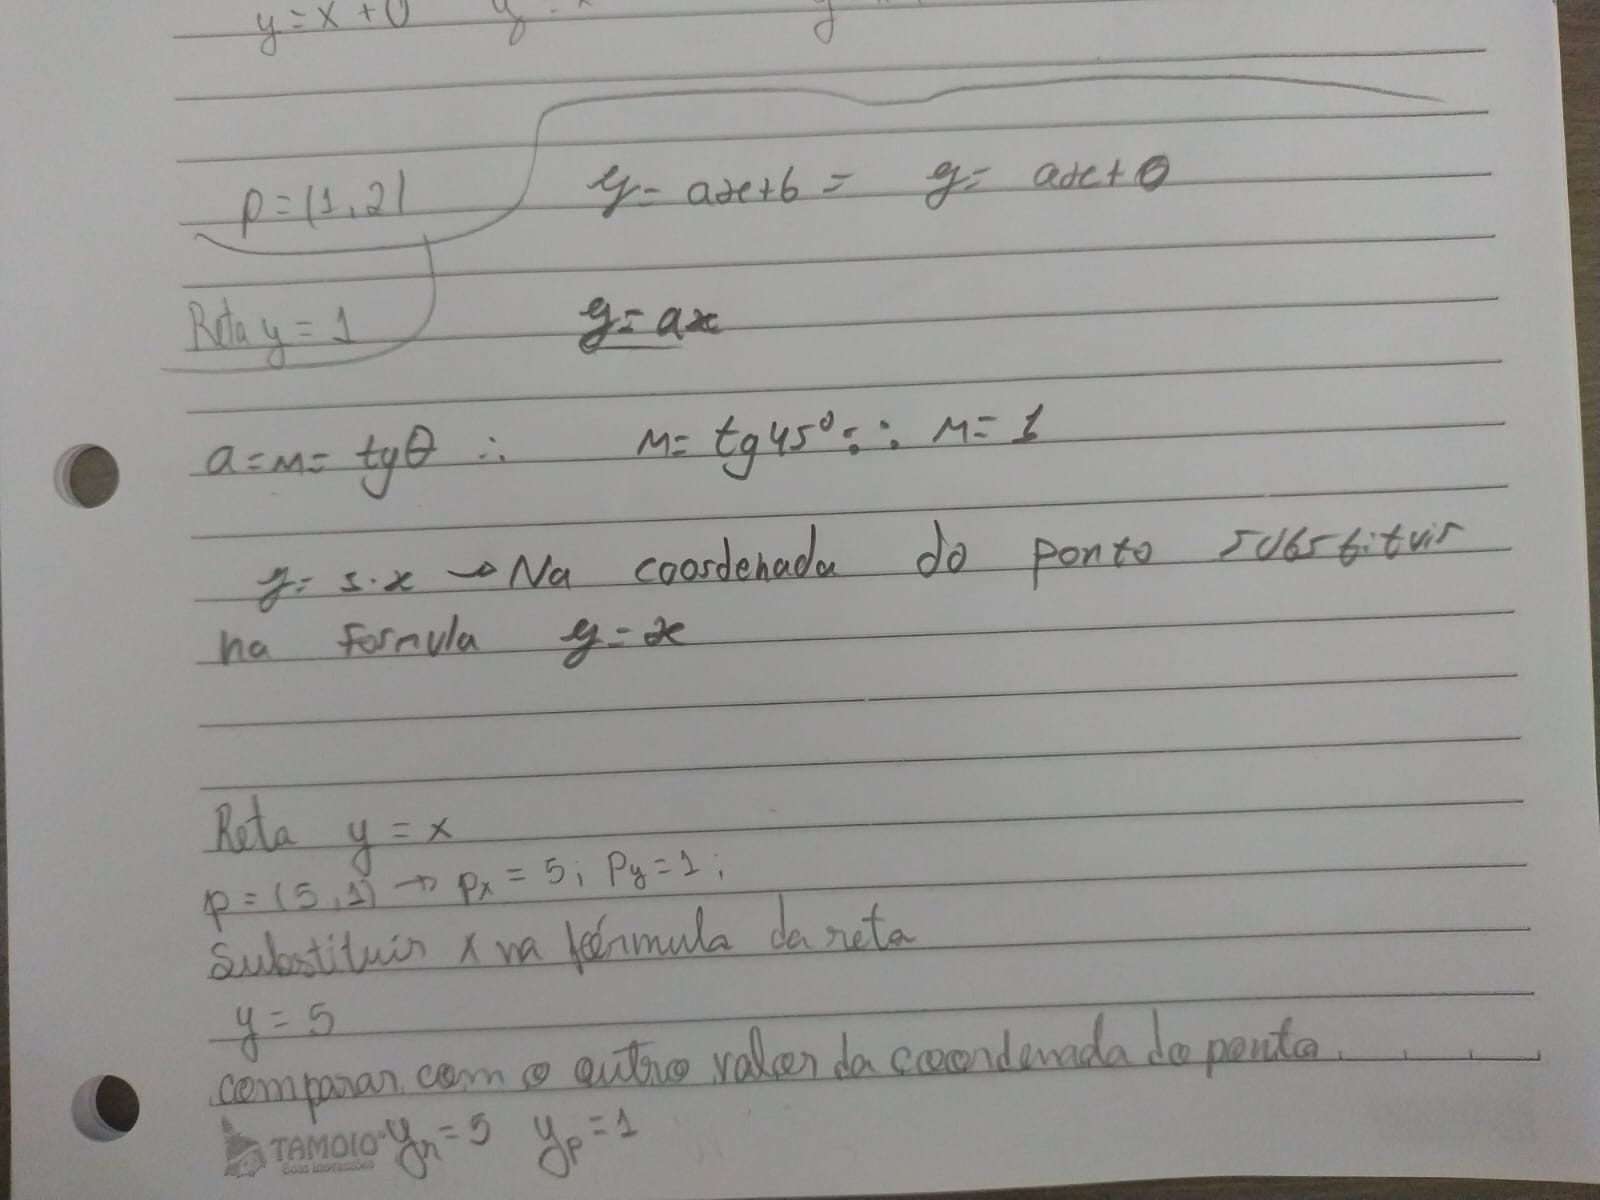 y = x + 0
p = (1, 2) y = ax + b = y = ax + 0
Reta y = 1 y = ax
a = m = tgθ ∴ m = tg 45° ∴ m = 1
y = 1 · x → Na coordenada do ponto substituir
na formula y = x
Reta y = x
p = (5, 1) → px = 5; Py = 1;
Substituir x na fórmula da reta
y = 5
comparar com o outro valor da coordenada do ponto
TAMOIO
yr = 5 yp = 1